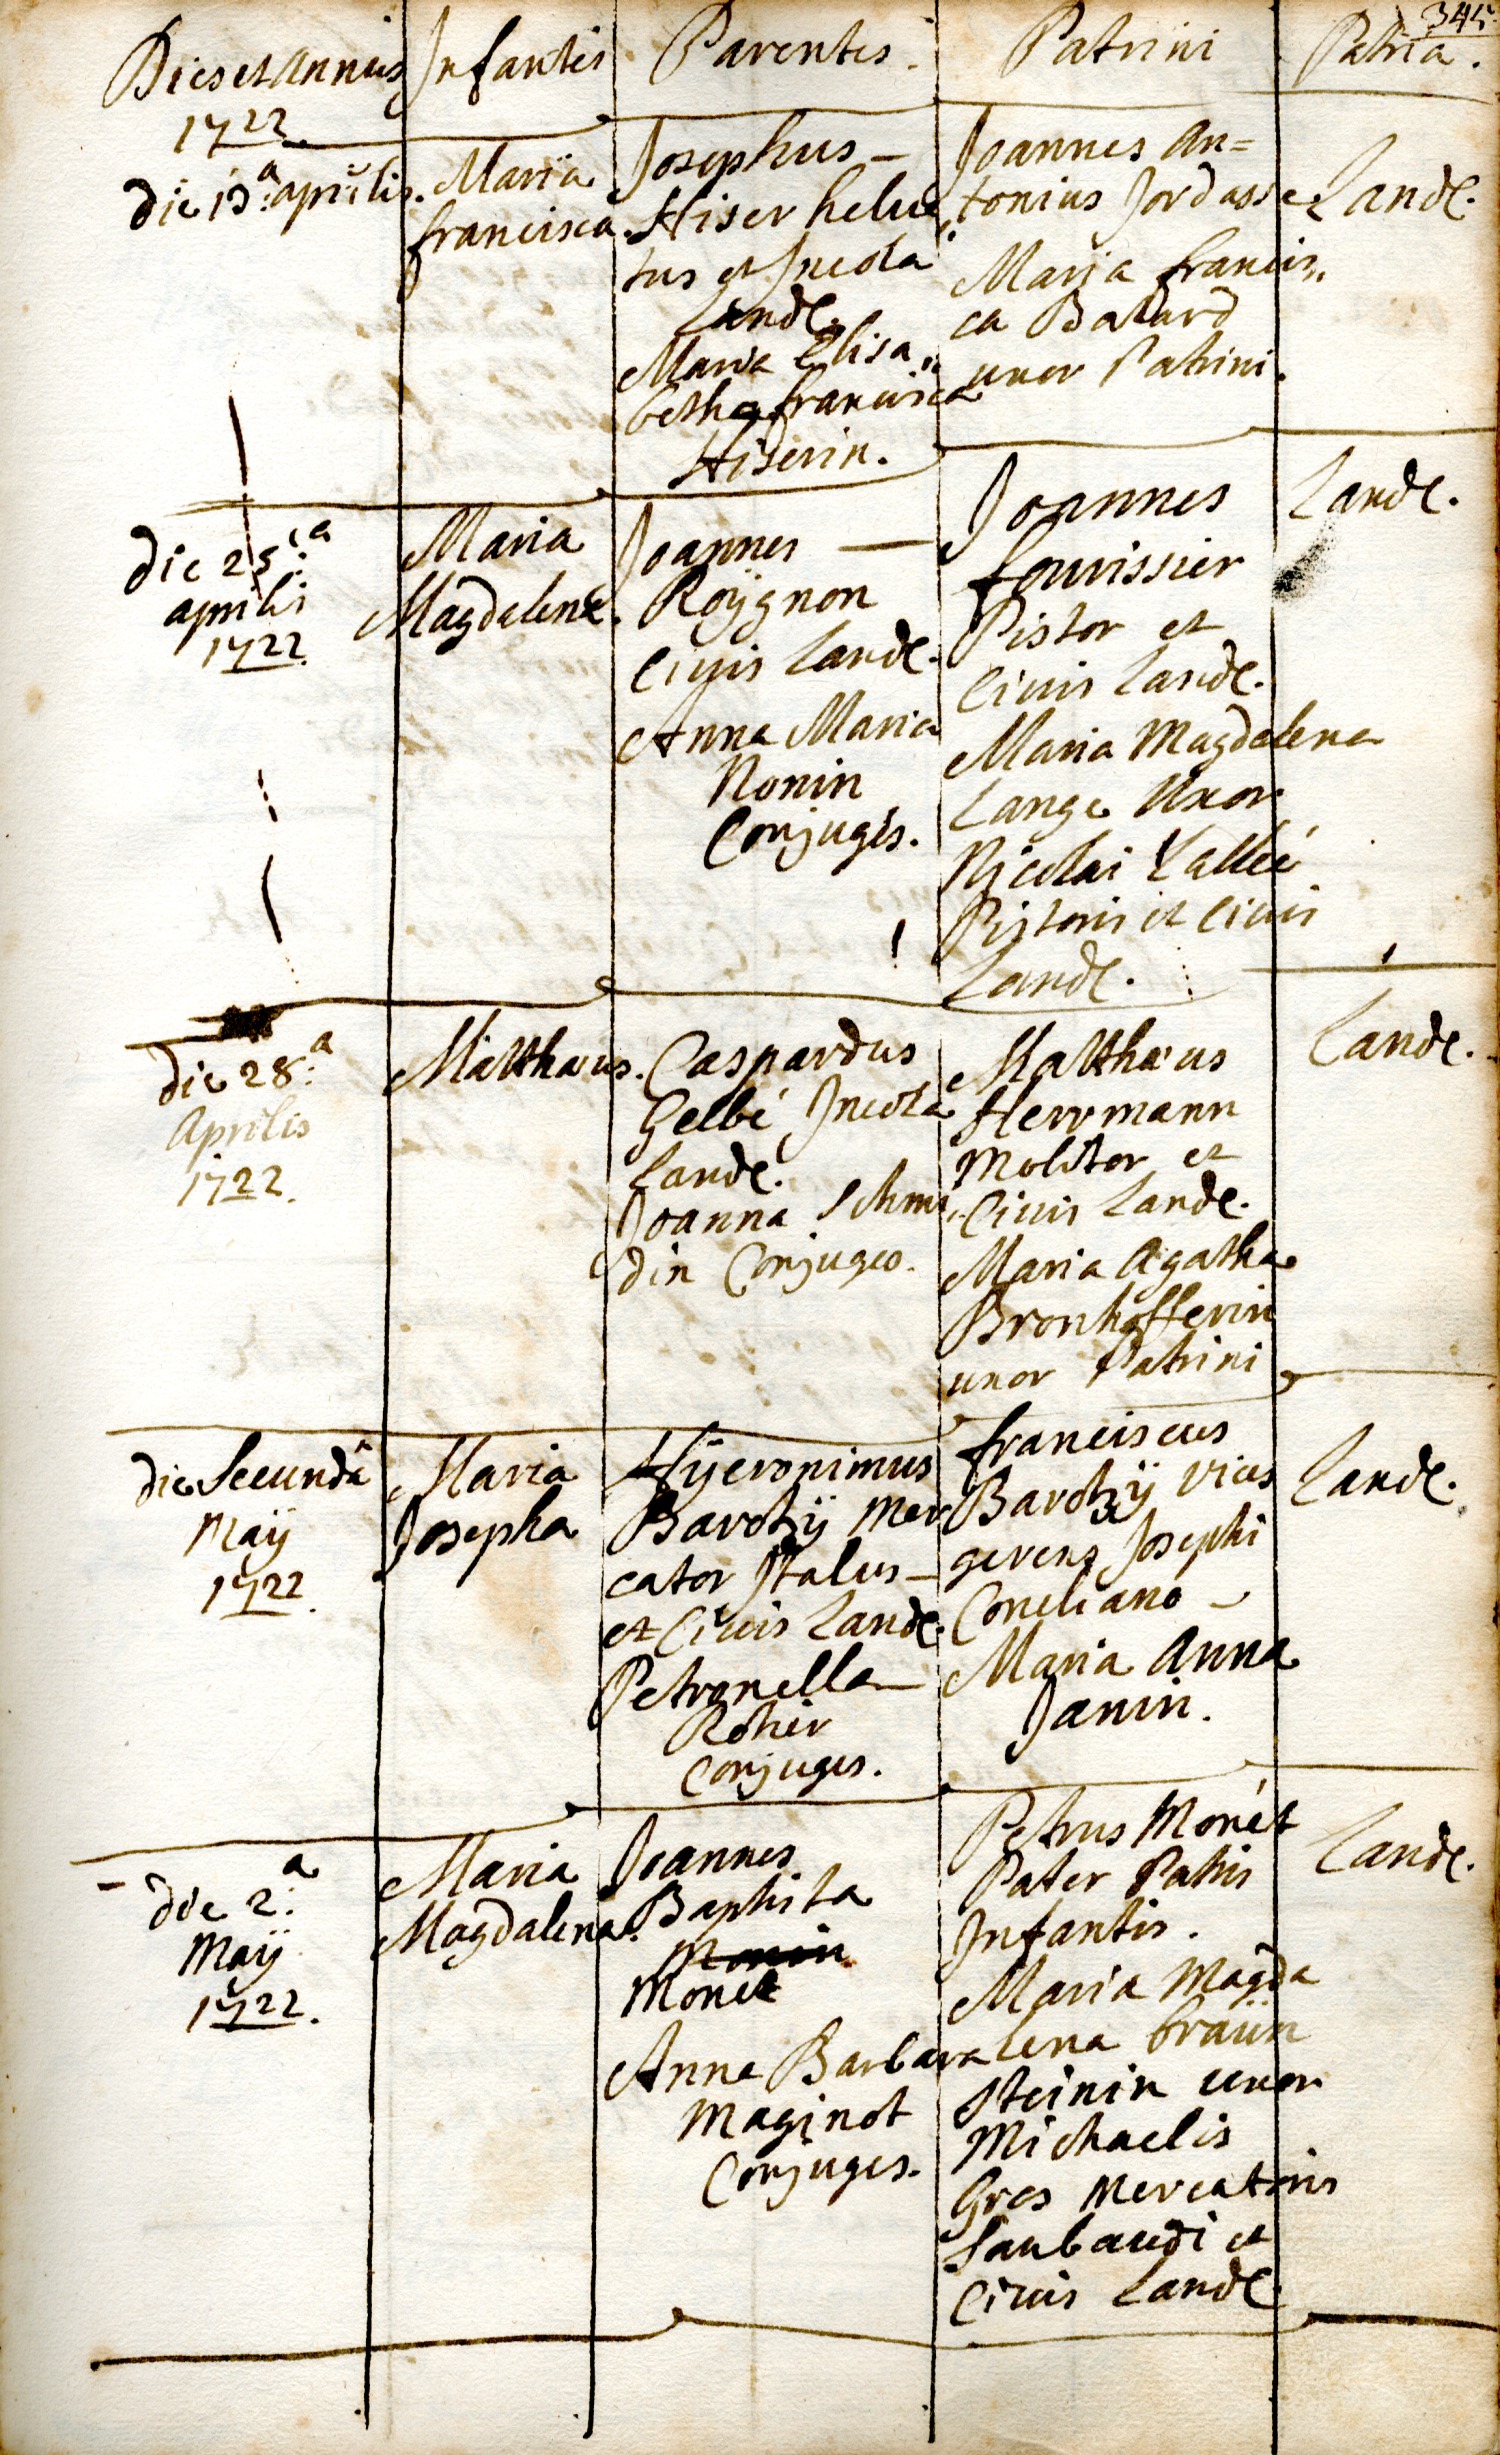 345.
Dies et Annus
Infantis
Parentes.
Patrini
Patria.
1722
die 13.a aprilis.
Maria
francisca.
Josephus —
Hiser helue,,
tus et Incola
Lande.
Maria Elisa,,
betha francisca
Hiserin.
Joannes An=
tonius Jordasse
Maria francis,,
ca Balard
uxor Patrini.
Lande.
die 25.a
aprilis
1722
Maria
Magdalena.
Joannes —
Roÿgnon
Ciuis Lande.
Anna Maria
Nonin
Conjuges.
Joannes
fourissier
Pistor et
Ciuis Lande.
Maria Magdalena
Lange Uxor
Nicolai Vallée
Pistoris et Ciuis
Lande.
Lande.
die 28.a
Aprilis
1722.
Matthæus.
Caspardus
Gelbé Incola
Lande.
Joanna Schmi,,
din Conjuges.
Matthæus
Herrmann
Molitor et
Ciuis Lande.
Maria Agatha
Bronhofferin
uxor Patrini
Lande.
die Secundâ
Maÿ
1722.
Maria
Josepha
Hÿeronimus
Barotzÿ Mer
cator Italus —
et Ciuis Lande.
Petronella —
Rohir
Conjuges.
franciscus
Barotzÿ vices
gerens Josephi
Coneliano —
Maria Anna
Janin.
Lande.
die 2.a
Maÿ
1722.
Maria
Magdalena.
Joannes
Baptista
Monin
Monet
Anna Barbara
Maginot
Conjuges.
Petrus Monét
Pater Patris
Infantis.
Maria Magda
lena braün
Steinin uxor
Michaelis
Gros Mercatoris
Saubaudi et
Ciuis Lande.
Lande.